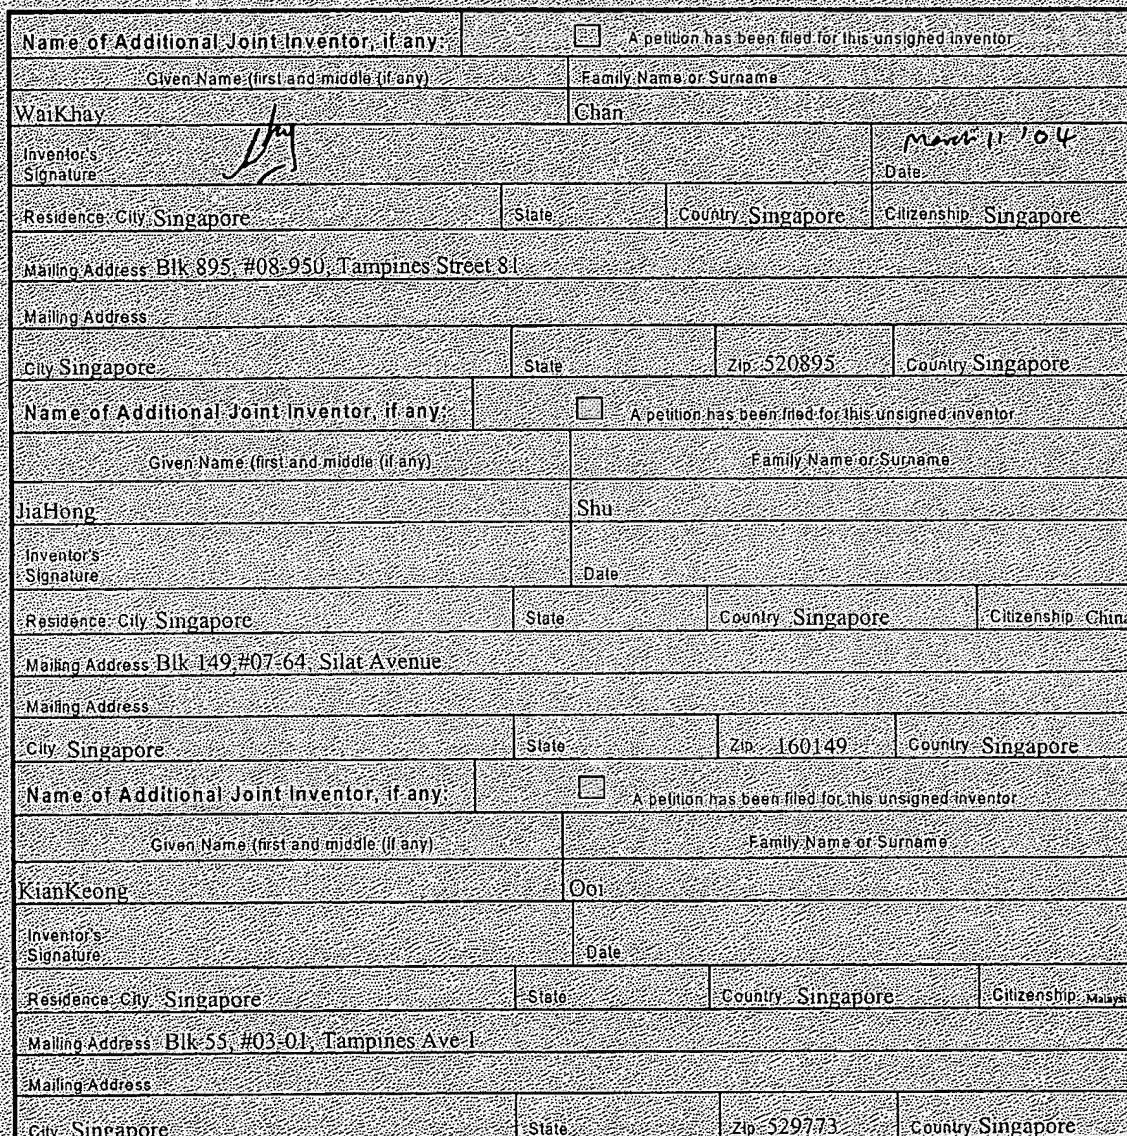 Name of Additional Joint Inventor, if any: A petition has been filed for this unsigned inventor
Given Name (first and middle (if any) Family Name or Surname
WaiKhay Chan
Inventor's Signature Date March 11 '04
Residence: City Singapore State Country Singapore Citizenship Singapore
Mailing Address Blk 895, #08-950, Tampines Street 81
Mailing Address
City Singapore State Zip 520895 Country Singapore
Name of Additional Joint Inventor, if any: A petition has been filed for this unsigned inventor
Given Name (first and middle (if any) Family Name or Surname
JiaHong Shu
Inventor's Signature Date
Residence: City Singapore State Country Singapore Citizenship China
Mailing Address Blk 149,#07-64, Silat Avenue
Mailing Address
City Singapore State Zip 160149 Country Singapore
Name of Additional Joint Inventor, if any: A petition has been filed for this unsigned inventor
Given Name (first and middle (if any) Family Name or Surname
KianKeong Ooi
Inventor's Signature Date
Residence: City Singapore State Country Singapore Citizenship Malaysi
Mailing Address Blk 55, #03-01, Tampines Ave 1
Mailing Address
City Singapore State Zip 529773 Country Singapore